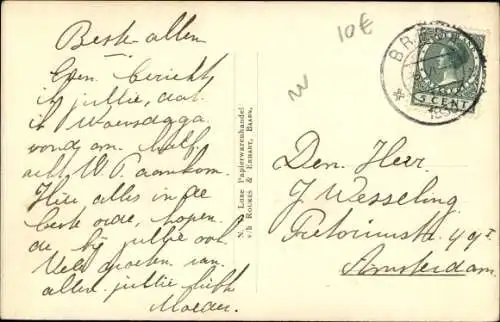 Beste allen
Even bericht
ik jullie, dat
ik Woensdag
avond am half
acht W.P. aankom.
Hier alles in de
beste orde, hopen
de bij jullie ook
Vele groeten van
allen jullie liefh
Moeder.
N. S. Luxe Papierwarenhandel
v/h Roukes & Erhart, Baarn.
10€
BR
5 CENT
Den Heer
J Wesseling
Pretoriusstr. 49 I
Amsterdam.